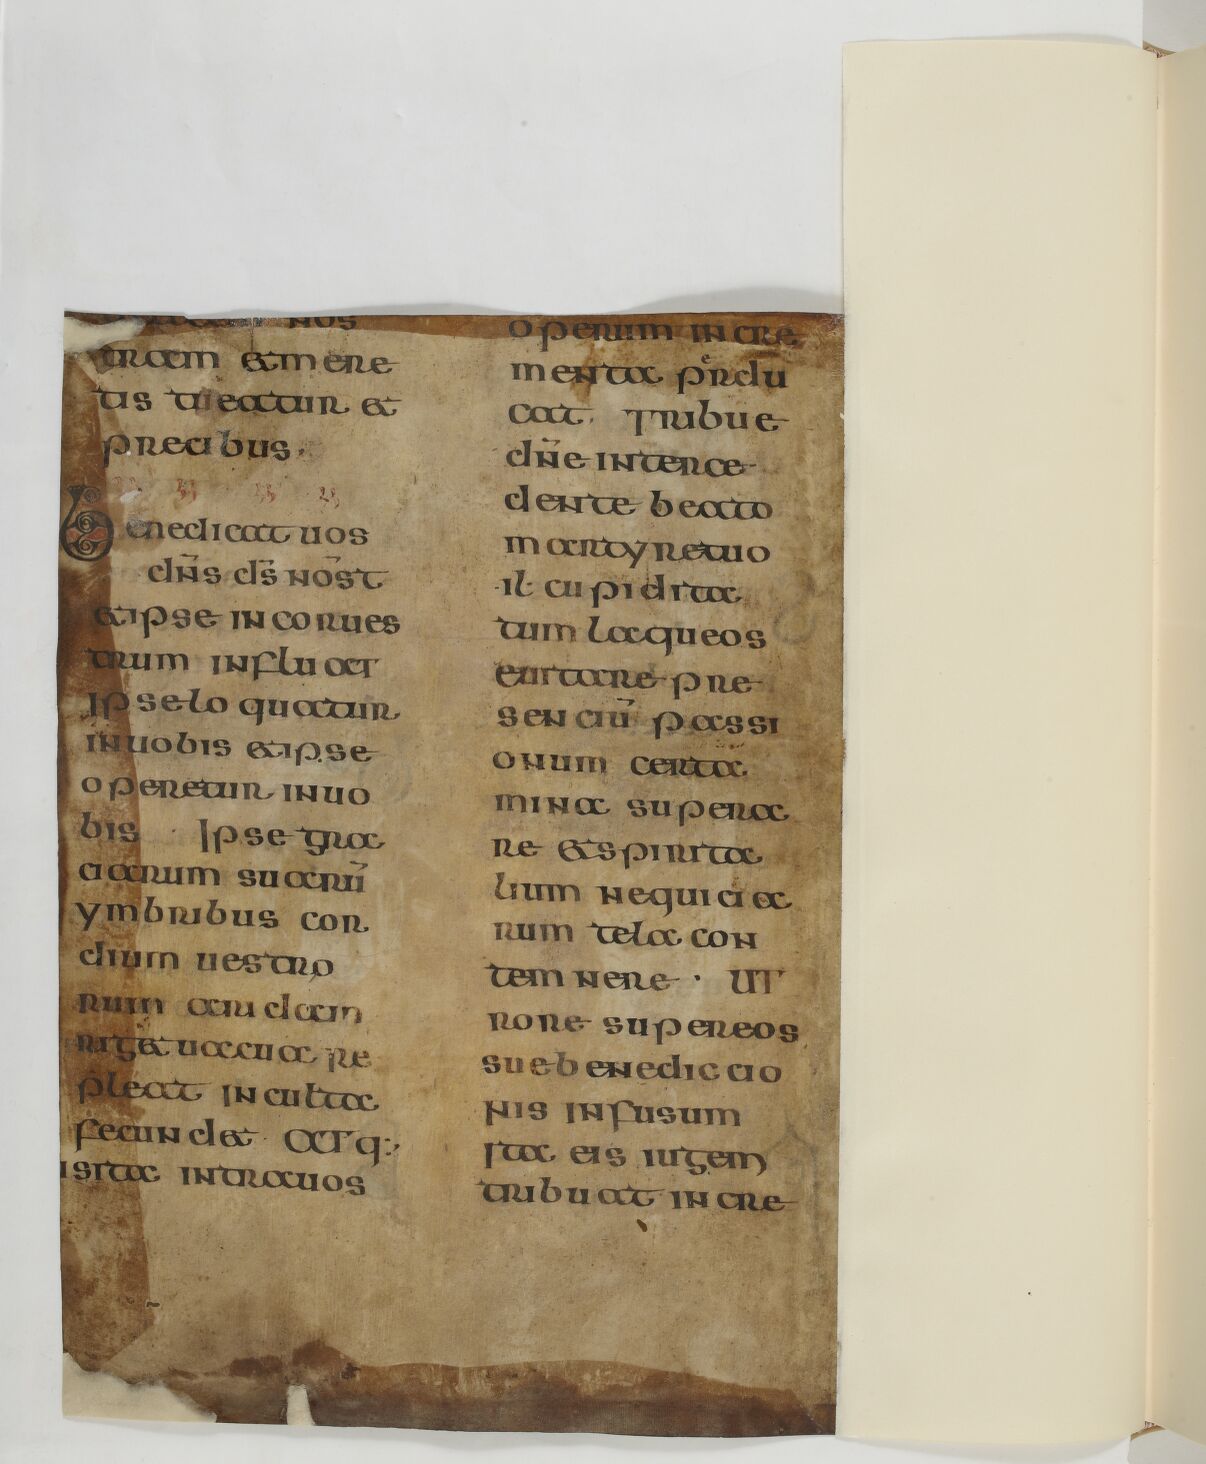 nos
tram et mere
tis tueatur et
precibus
Benedicat uos
dn̄s ds̄ nōst
et ipse in cor ues
trum influat
Ipse loquatur
in uobis et ipse
operetur in uo
bis · Ipse gra
ciarum suarū
ymbribus cor
dium uestro
rum aridam
riget uacua re
pleat inculta
fecundet · ATq:
isita intra uos
operum incre
menta perdu
cat · Tribue
dn̄e interce
dente beato
martyre tuo
il cupidita
tum laqueos
euitare pre
senciū passi
onum certa
mina supera
re et spirita
lium nequicia
rum tela con
temnere · UT
rore supereos
sue benediccio
nis infusum
Ita eis iugem
tribuat incre